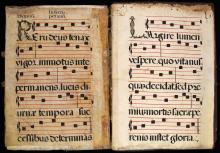 Rerū deus tenax
vigor immotus in te
permanens lucis di
urnæ tempora suc
cessibus determinās
Largire lumen
vespere quo vita nus
quā decidat sed præ
miū mortis sacræ pe
rennis instet gloria.